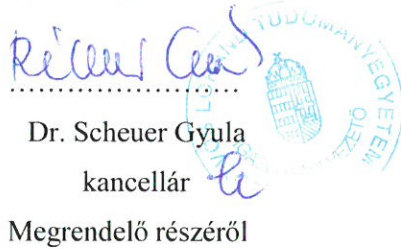 TUDOMÁNYEGYETEM
Dr. Scheuer Gyula
kancellár
Megrendelő részéről